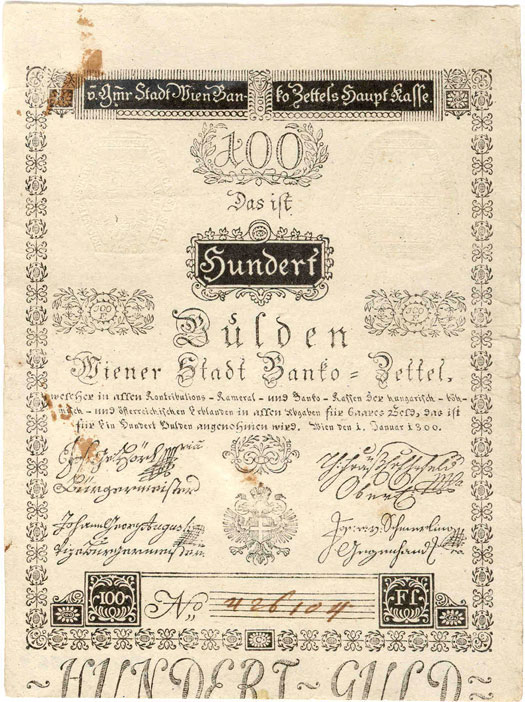 Stadt Wien Ban-
ko Zettels Haupt Kasse.
100
Das ist
Hundert
100
Gulden
Wiener Stadt Banko = Zettel,
welcher in allen Kontributions - Kameral - und Banko - Kassen der hungarisch - böh-
misch - und österreichischen Erblanden in allen Abgaben für baares Geld, das ist
für Ein Hundert Gulden angenohmen wird. Wien den 1. Januar 1800.
Bürgermeister
Johann Georg
Vizebürgermeister
100
No 426104
Fl.
~HUNDERT~GULD